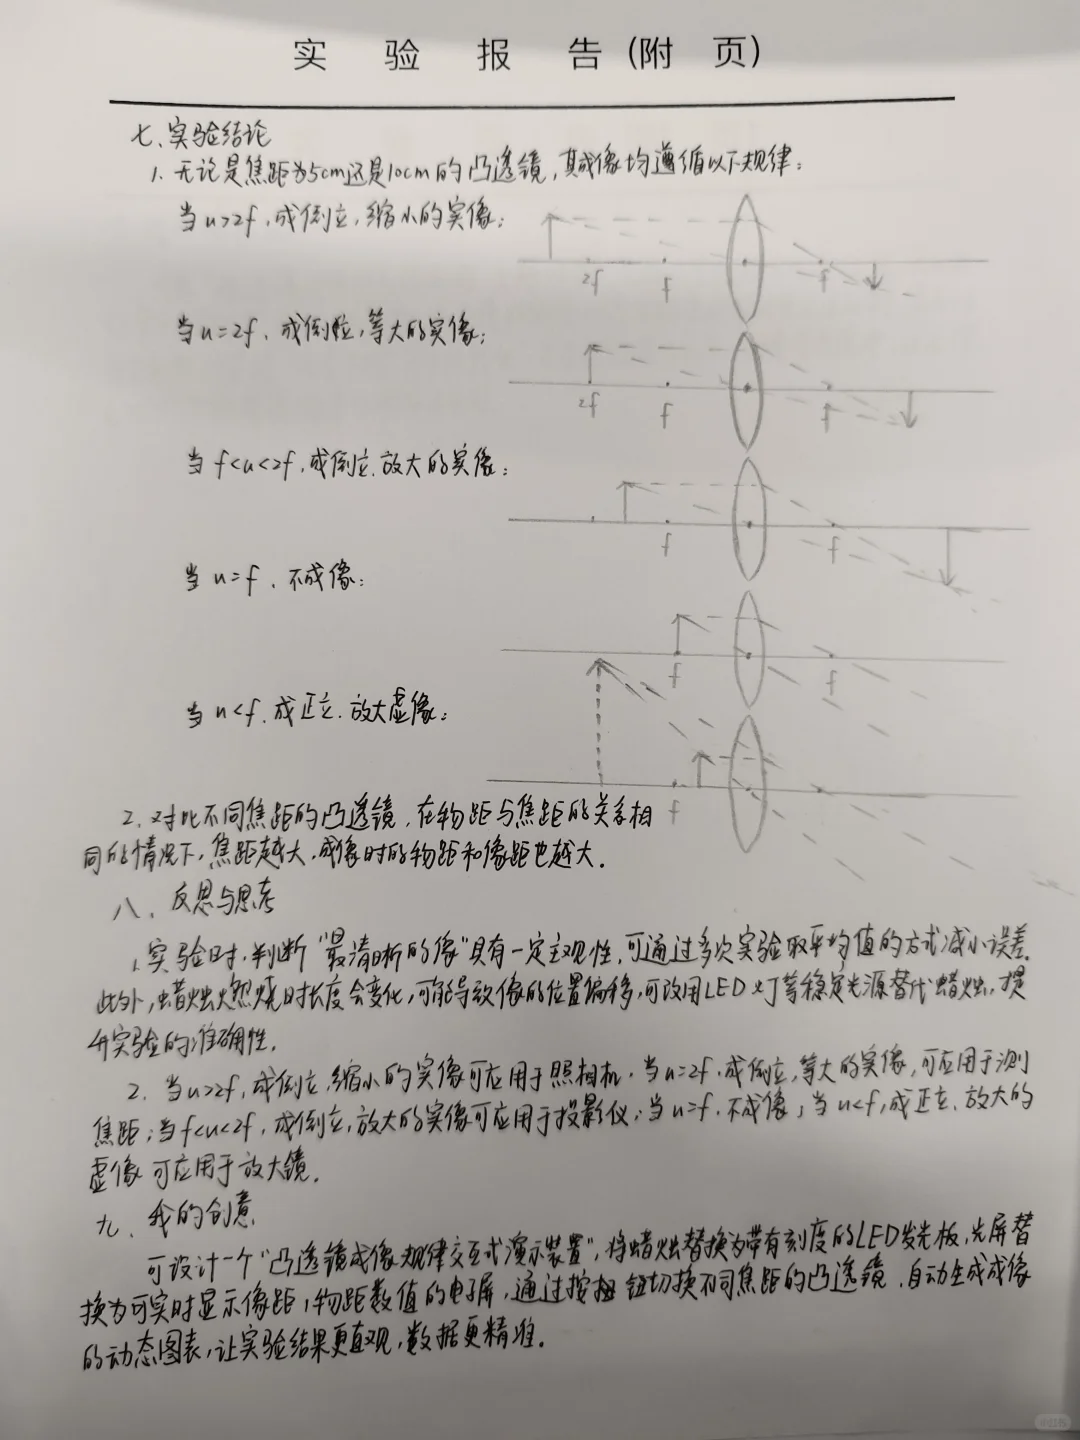 实验报告(附页)
七、实验结论
1. 无论是焦距为5cm还是10cm的凸透镜,其成像均遵循以下规律:
当u>2f,成倒立,缩小的实像;
2f f f
当u=2f,成倒立,等大的实像;
2f f f
当f<u<2f,成倒立、放大的实像;
f f
当u=f、不成像;
f f
当u<f,成正立、放大虚像;
f
2. 对比不同焦距的凸透镜,在物距与焦距的关系相
同的情况下,焦距越大,成像时的物距和像距也越大.
八、反思与思考
1. 实验时,判断“最清晰的像”具有一定主观性,可通过多次实验取平均值的方式减小误差.
此外,蜡烛火燃烧时长度会变化,可能导致像的位置偏移,可改用LED灯等稳定光源替代蜡烛,提
升实验的准确性.
2. 当u>2f,成倒立,缩小的实像可应用于照相机.当u=2f,成倒立,等大的实像,可应用于测
焦距;当f<u<2f,成倒立,放大的实像可应用于投影仪;当u=f,不成像;当u<f,成正立、放大的
虚像可应用于放大镜.
九、我的创意
可设计一个“凸透镜成像规律交互式演示装置”,将蜡烛替换为带有刻度的LED发光板,光屏替
换为可实时显示像距,物距数值的电子屏,通过按钮切换不同焦距的凸透镜,自动生成成像
的动态图表,让实验结果更直观,数据更精准.